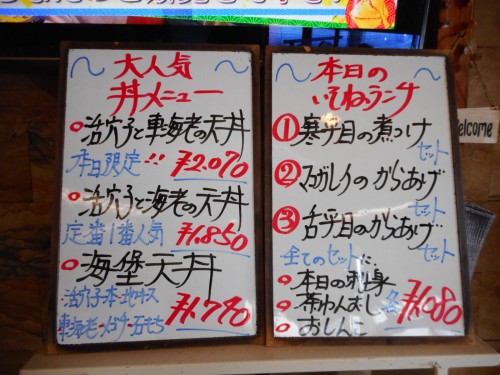 大人気
丼メニュー
活穴子と車海老の天丼
本日限定!! ¥2,070
活穴子と海老の天丼
定番1番人気 ¥1,850
海堡天丼
活穴子一本・地キス
車海老・メゴチ・石もち
¥1,740
本日の
いそねランチ
① 寒平目の煮つけ
セット
② マコガレイのからあげ
セット
③ 舌平目のからあげ
セット
全てのセットに、
本日の刺身
茶わんむし
おしんこ
各¥1,080
Welcome